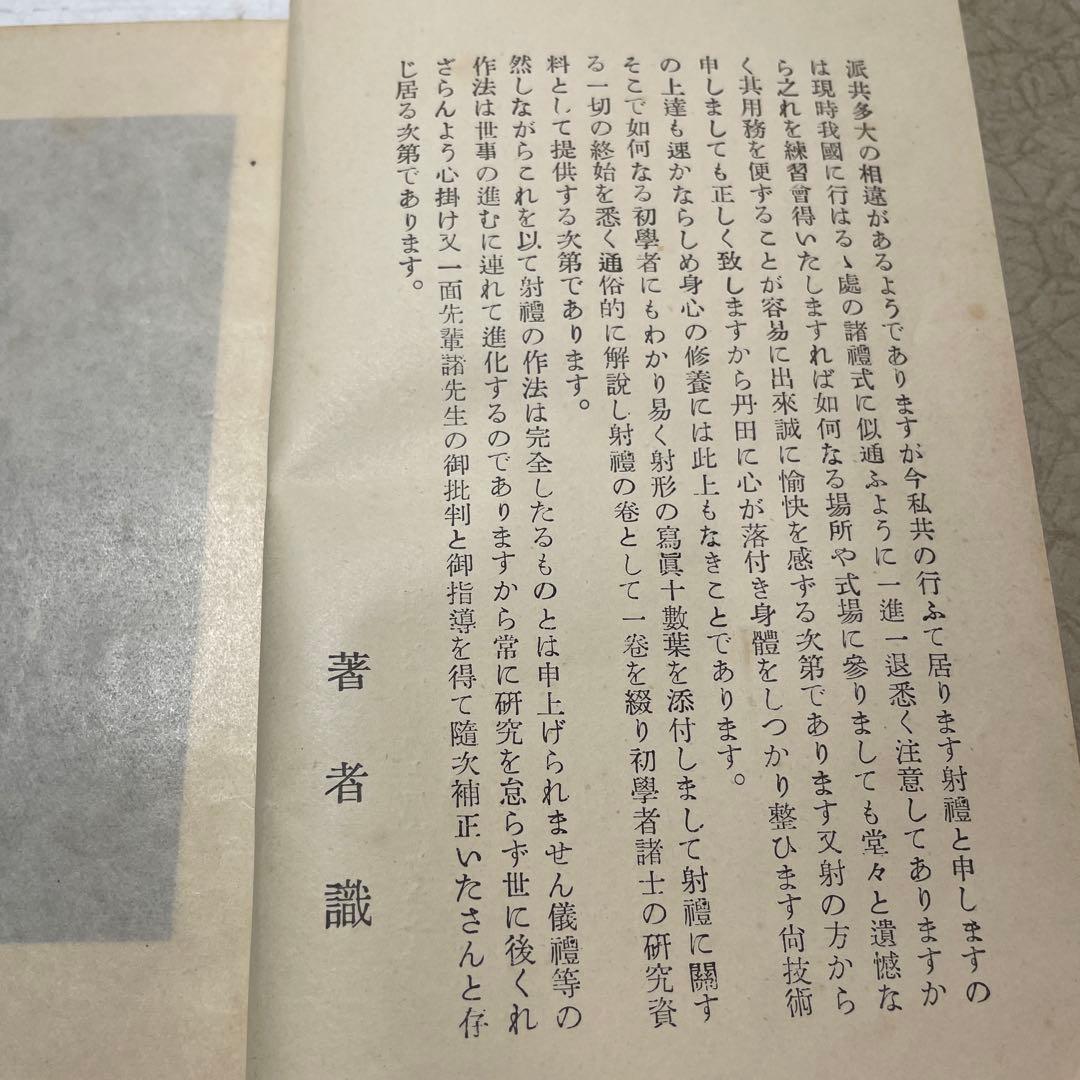 派共多大の相違があるようでありますが今私共の行ふて居ります射禮と申しますの
は現時我國に行はるゝ處の諸禮式に似通ふように一進一退悉く注意してありますか
ら之れを練習會得いたしますれば如何なる場所や式場に參りましても堂々と遺憾な
く其用務を便ずることが容易に出來誠に愉快を感ずる次第であります又射の方から
申しましても正しく致しますから丹田に心が落付き身體をしつかり整ひます尙技術
の上達も速かならしめ身心の修養には此上もなきことであります。
そこで如何なる初學者にもわかり易く射形の寫眞十數葉を添付しまして射禮に關す
る一切の終始を悉く通俗的に解說し射禮の卷として一卷を綴り初學者諸士の研究資
料として提供する次第であります。
然しながらこれを以て射禮の作法は完全したるものとは申上げられません儀禮等の
作法は世事の進むに連れて進化するのでありますから常に研究を怠らず世に後くれ
ざらんよう心掛け又一面先輩諸先生の御批判と御指導を得て隨次補正いたさんと存
じ居る次第であります。
著者識